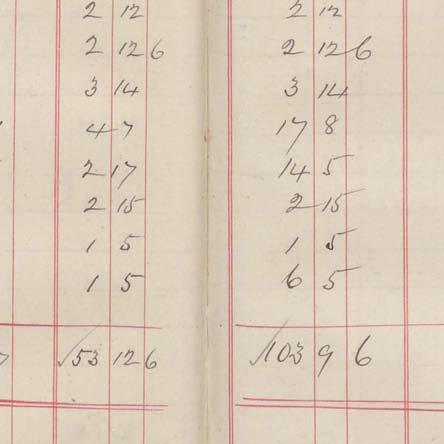 2 12 2 12
2 12 6 2 12 6
3 14 3 14
4 7 17 8
2 17 14 5
2 15 2 15
1 5 1 5
1 5 6 5
√53 12 6 √103 9 6